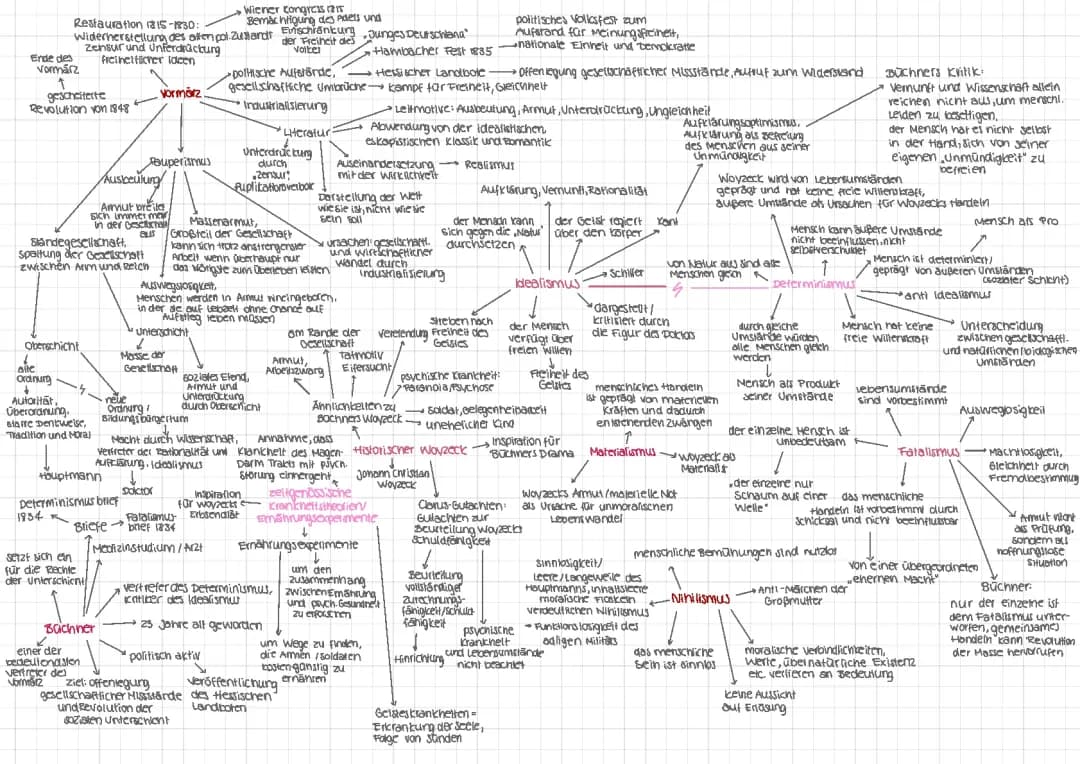 Wiener Kongress 1815
Bemächtigung des Adels und
Einschränkung
der Freiheit des
Volkes
Restauration 1815-1830:
Widerherstellung des alten pol. Zustands
Zensur und Unterdrückung
freiheitlicher Ideen
Ende des
Vormärz
gescheiterte
Revolution von 1848
Vormärz
politische Aufstände,
gesellschaftliche Umbrüche
"Junges Deutschland"
Hambacher Fest 1835
politisches Volksfest zum
Aufstand für Meinungsfreiheit,
nationale Einheit und Demokratie
Hessischer Landbote
Offenlegung gesellschaftlicher Missstände, Aufruf zum Widerstand
Kampf für Freiheit, Gleichheit
Industrialisierung
Literatur
Leitmotive: Ausbeutung, Armut, Unterdrückung, Ungleichheit
Abwendung von der idealistischen,
eskapistischen Klassik und Romantik
Auseinandersetzung
mit der Wirklichkeit
Realismus
Unterdrückung
durch
"Zensur",
Puplikationsverbot
Darstellung der Welt
wie sie ist, nicht wie sie
sein soll
Pauperismus
Ausbeutung
Armut breitet
sich immer mehr
in der Gesellschaft
aus
Massenarmut,
Großteil der Gesellschaft
kann sich trotz anstrengenster
Arbeit wenn überhaupt nur
das Nötigste zum Überleben leisten
Ursachen: gesellschaftl.
und wirtschaftlicher
Wandel durch
Industrialisierung
Ständegesellschaft,
Spaltung der Gesellschaft
zwischen Arm und Reich
Ausweglosigkeit,
Menschen werden in Armut hineingeboren,
in der sie auf Lebzeit ohne Chance auf
Aufstieg leben müssen
Oberschicht
alte
Ordnung
Autorität,
Überordnung,
starre Denkweise,
Tradition und Moral
Hauptmann
neue
Ordnung /
Bildungsbürgertum
Macht durch Wissenschaft,
Vertreter der Rationalität und
Aufklärung, Idealismus
Doktor
Unterschicht
Masse der
Gesellschaft
soziales Elend,
Armut und
Unterdrückung
durch Oberschicht
Büchners Kritik:
Vernunft und Wissenschaft allein
reichen nicht aus, um menschl.
Leiden zu beseitigen,
der Mensch hat es nicht selbst
in der Hand, sich von seiner
eigenen "Unmündigkeit" zu
befreien
Aufklärungsoptimismus,
Aufklärung als Befreiung
des Menschen aus seiner
Unmündigkeit
Aufklärung, Vernunft, Rationalität
der Mensch kann
sich gegen die "Natur"
durchsetzen
der Geist regiert
über den Körper
Kant
Schiller
Idealismus
dargestellt /
kritisiert durch
die Figur des Doktors
Streben nach
Freiheit des
Geistes
der Mensch
verfügt über
freien Willen
Freiheit des
Geistes
von Natur aus sind alle
Menschen gleich
Determinismus
Woyzeck wird von Lebensumständen
geprägt und hat keine freie Willenskraft,
äußere Umstände als Ursachen für Woyzecks Handeln
Mensch kann äußere Umstände
nicht beeinflussen, nicht
selbstverschuldet
Mensch als Pro
Mensch ist determiniert /
geprägt von äußeren Umständen
(sozialer Schicht)
anti Idealismus
Unterscheidung
zwischen gesellschaftl.
und natürlichen / biologischen
Umständen
Mensch hat keine
freie Willenskraft
durch gleiche
Umstände würden
alle Menschen gleich
werden
Mensch als Produkt
seiner Umstände
am Rande der
Gesellschaft
Armut,
Arbeitszwang
Tatmotiv
Eifersucht
Verelendung
psychische Krankheit:
Paranoia / Psychose
Ähnlichkeiten zu
Büchners Woyzeck
Soldat, Gelegenheitsarbeit
unehelicher Kind
Historischer Woyzeck
Inspiration für
Büchners Drama
Johann Christian
Woyzeck
Clarus-Gutachten:
Gutachten zur
Beurteilung Woyzecks
Schuldfähigkeit
Beurteilung
vollständiger
Zurechnungs-
fähigkeit / Schuld-
fähigkeit
Hinrichtung
psychische
Krankheit
und Lebensumstände
nicht beachtet
Geisteskrankheiten =
Erkrankung der Seele,
Folge von Sünden
Annahme, dass
Krankheit des Magen-
Darm Trakts mit psych.
Störung einhergeht
zeitgenössische
Krankheitstheorien/
Ernährungsexperimente
Inspiration
für Woyzecks
Erbsendiät
Ernährungsexperimente
um den
Zusammenhang
zwischen Ernährung
und psych. Gesundheit
zu erforschen
um Wege zu finden,
die Armen / Soldaten
kostengünstig zu
ernähren
menschliches Handeln
ist geprägt von materiellen
Kräften und dadurch
entstehenden Zwängen
Materialismus
Woyzeck als
Materialist
Woyzecks Armut / materielle Not
als Ursache für unmoralischen
Lebenswandel
Lebensumstände
sind vorbestimmt
Ausweglosigkeit
der einzelne Mensch ist
unbedeutsam
"der einzelne nur
Schaum auf einer
Welle"
Fatalismus
Machtlosigkeit,
Gleichheit durch
Fremdbestimmung
das menschliche
Handeln ist vorbestimmt durch
Schicksal und nicht beeinflussbar
von einer übergeordneten
"ehernen Macht"
Armut nicht
als Prüfung,
sondern als
hoffnungslose
Situation
Büchner:
nur der einzelne ist
dem Fatalismus unter-
worfen, gemeinsames
Handeln kann Revolution
der Masse hervorrufen
menschliche Bemühungen sind nutzlos
Sinnlosigkeit /
Leere / Langeweile des
Hauptmanns, inhaltsleere
moralische Floskeln
verdeutlichen Nihilismus
→ Funktionslosigkeit des
adligen Militärs
Nihilismus
Anti-Märchen der
Großmutter
das menschliche
Sein ist sinnlos
moralische Verbindlichkeiten,
Werte, übernatürliche Existenz
etc. verlieren an Bedeutung
keine Aussicht
auf Erlösung
Determinismus brief
1834
Briefe
Fatalismus-
brief 1834
Medizinstudium / Arzt
setzt sich ein
für die Rechte
der Unterschicht
Vertreter des Determinismus,
Kritiker des Idealismus
Büchner
23 Jahre alt geworden
politisch aktiv
Veröffentlichung
des Hessischen
Landboten
einer der
bedeutendsten
Vertreter des
Vormärz
Ziel: Offenlegung
gesellschaftlicher Missstände
und Revolution der
sozialen Unterschicht